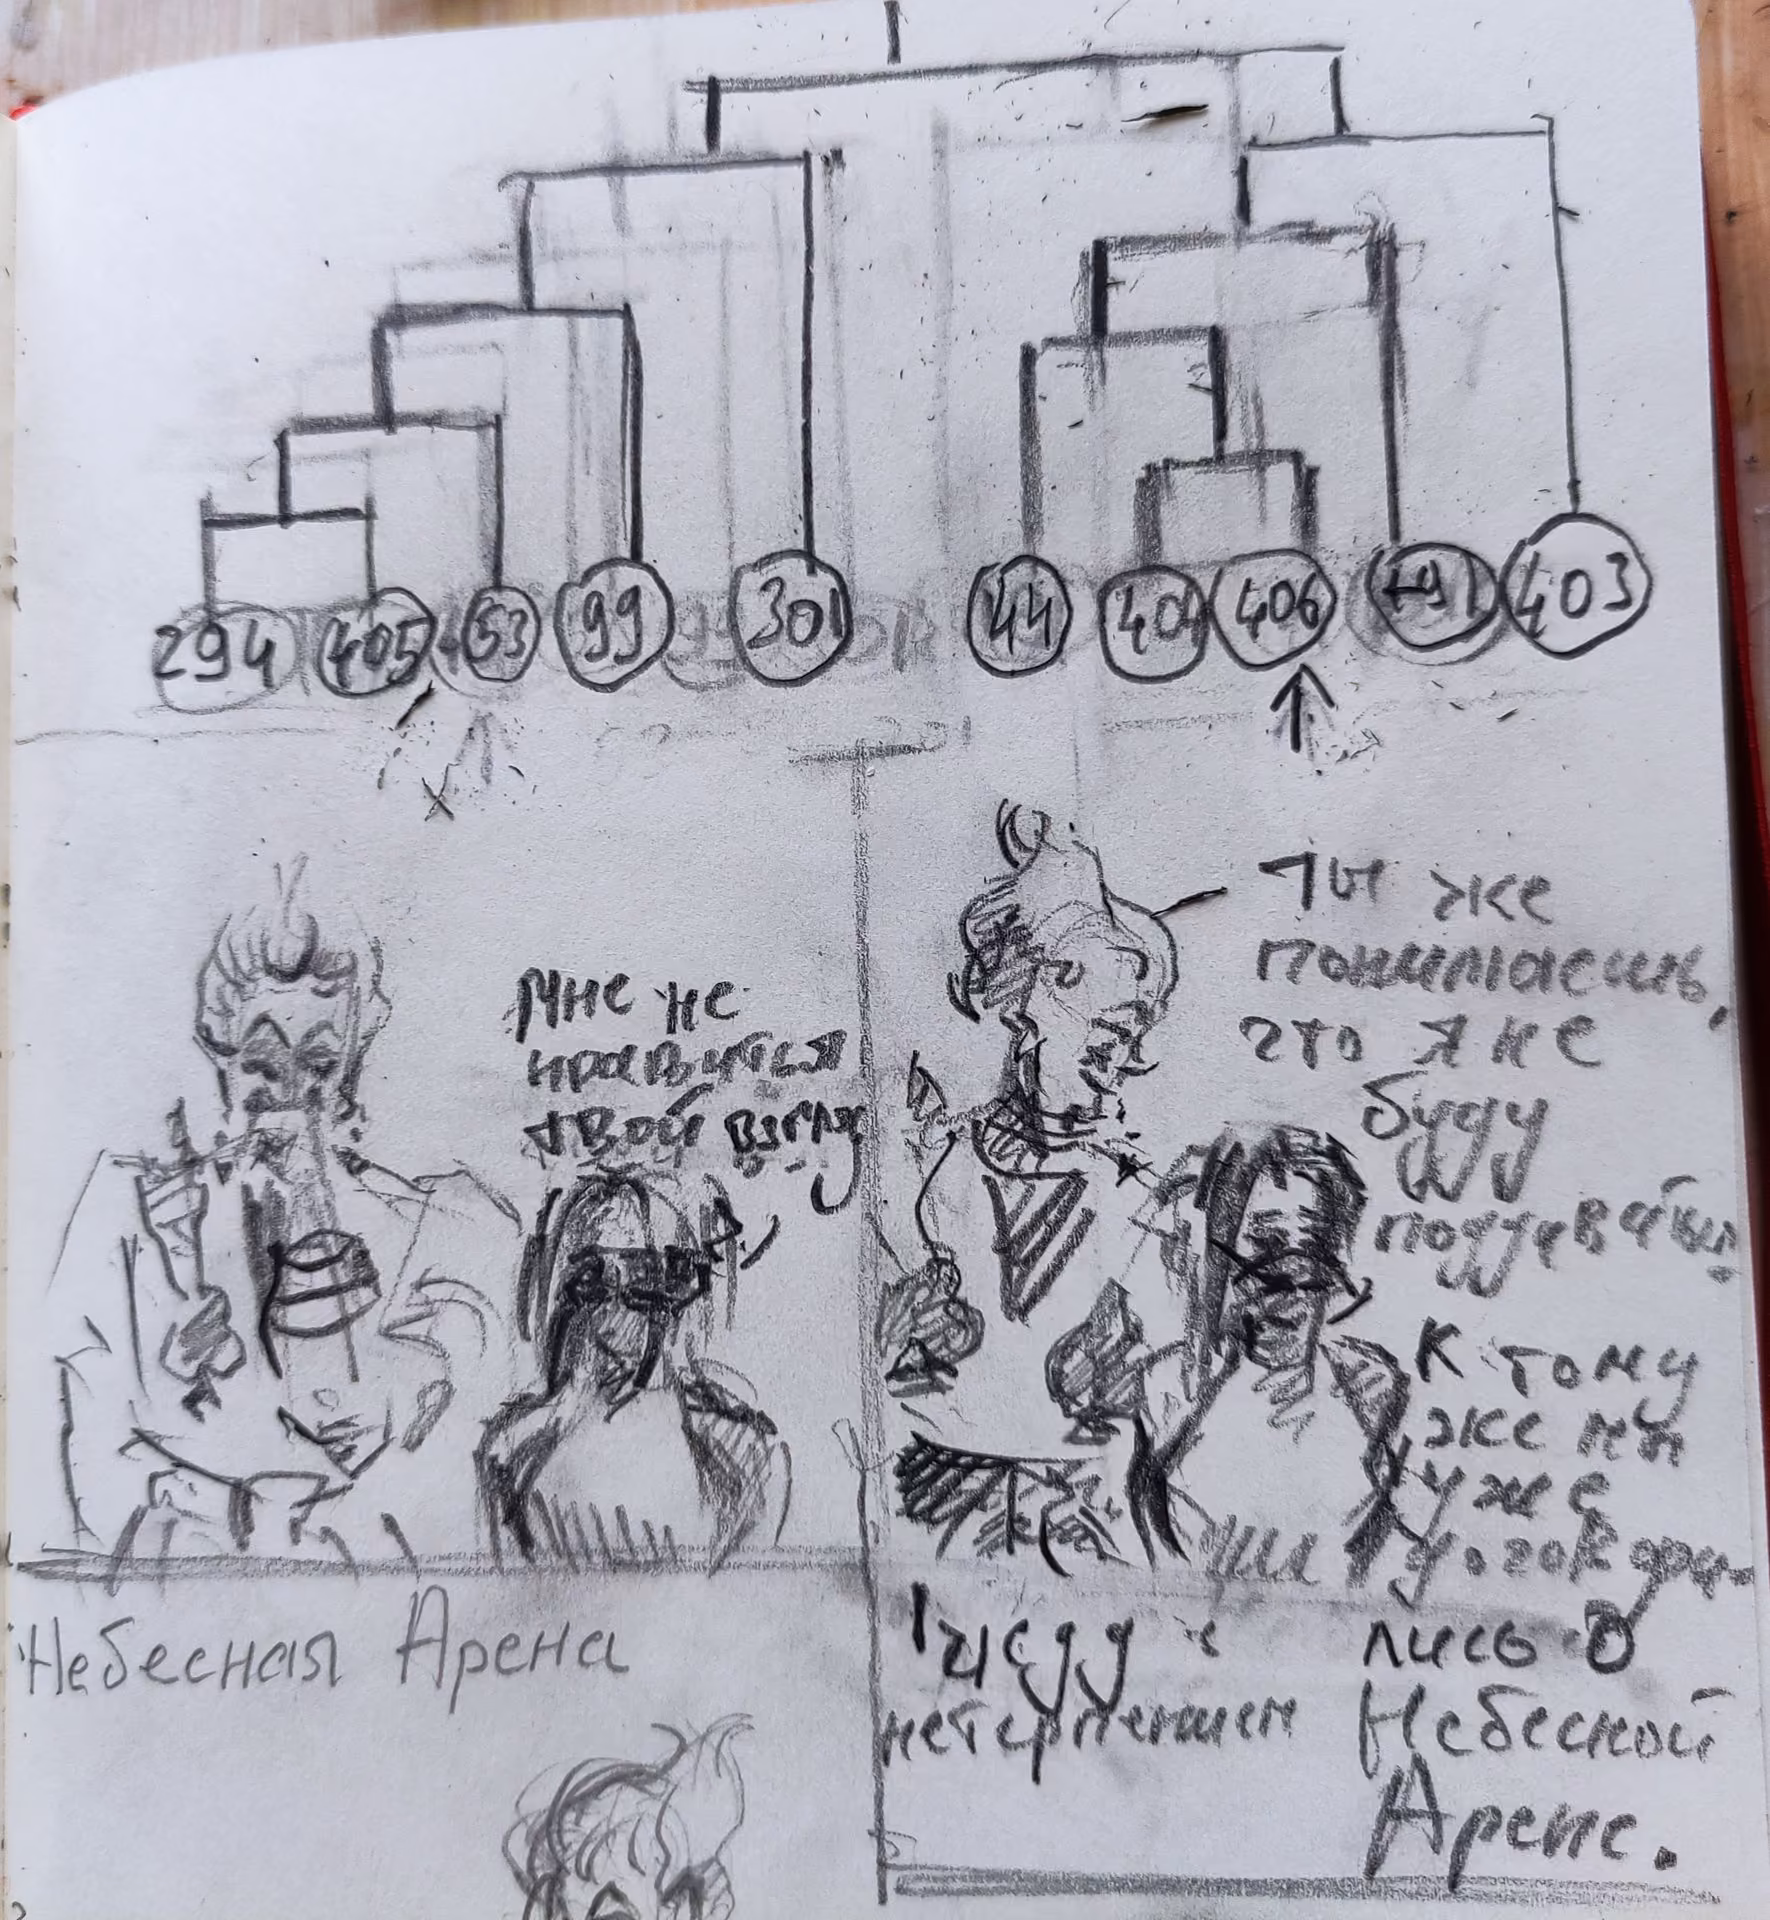 294 405 53 99 301 44 404 406 191 403
Мне не
нравиться
твой взгляд
Ты же
понимаешь,
что я не
буду
поддаваться
К тому
же мы
уже
договори-
лись о
Небесной
Арене.
Жду с
нетерпением
Небесная Арена